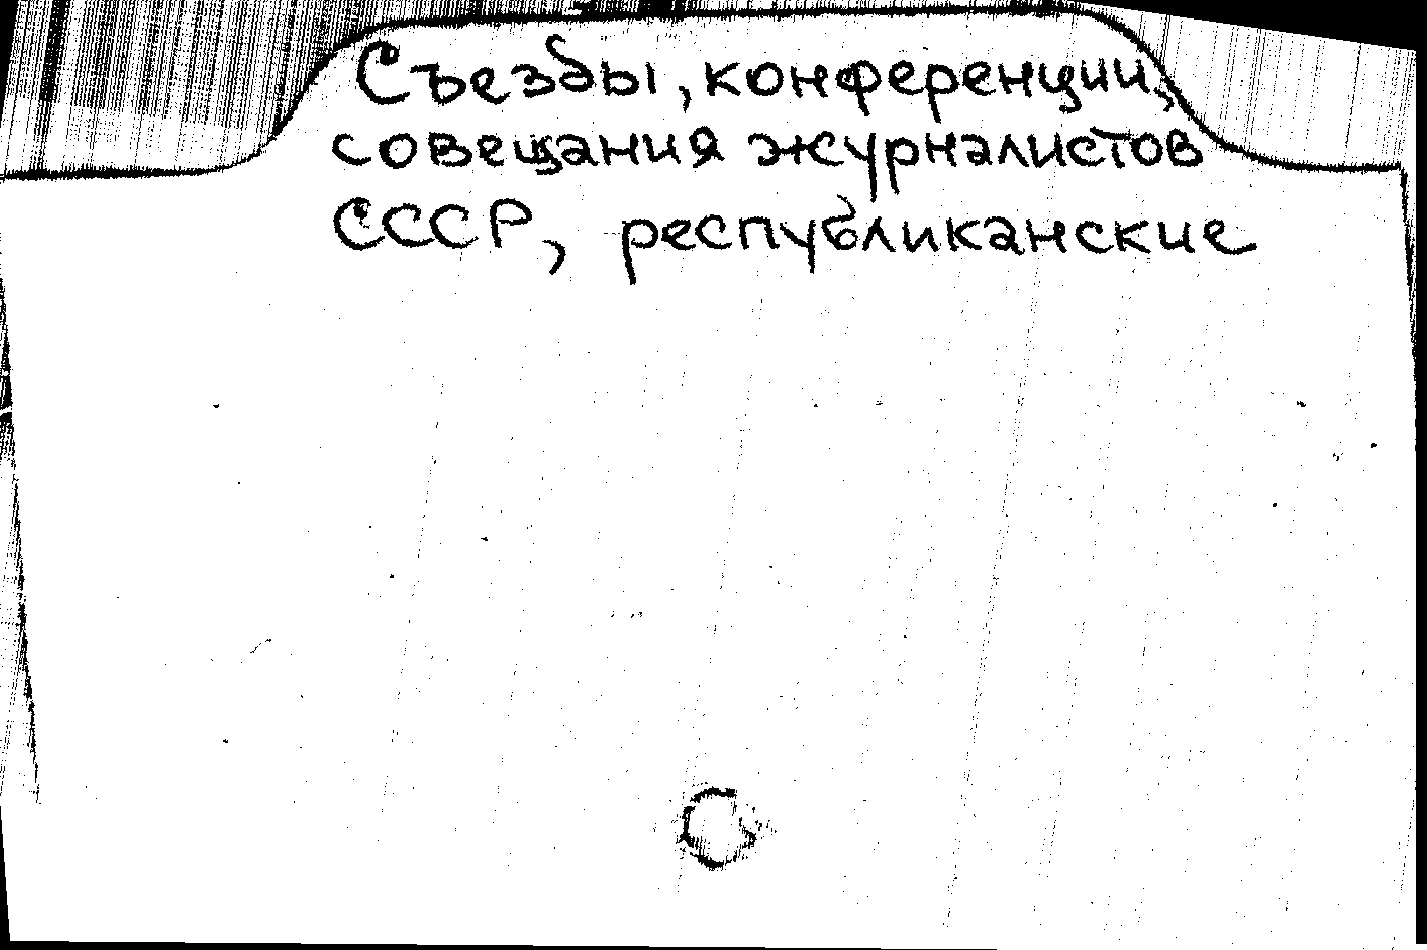 Съезды, конференции,
совещания журналистов
СССР, республиканские